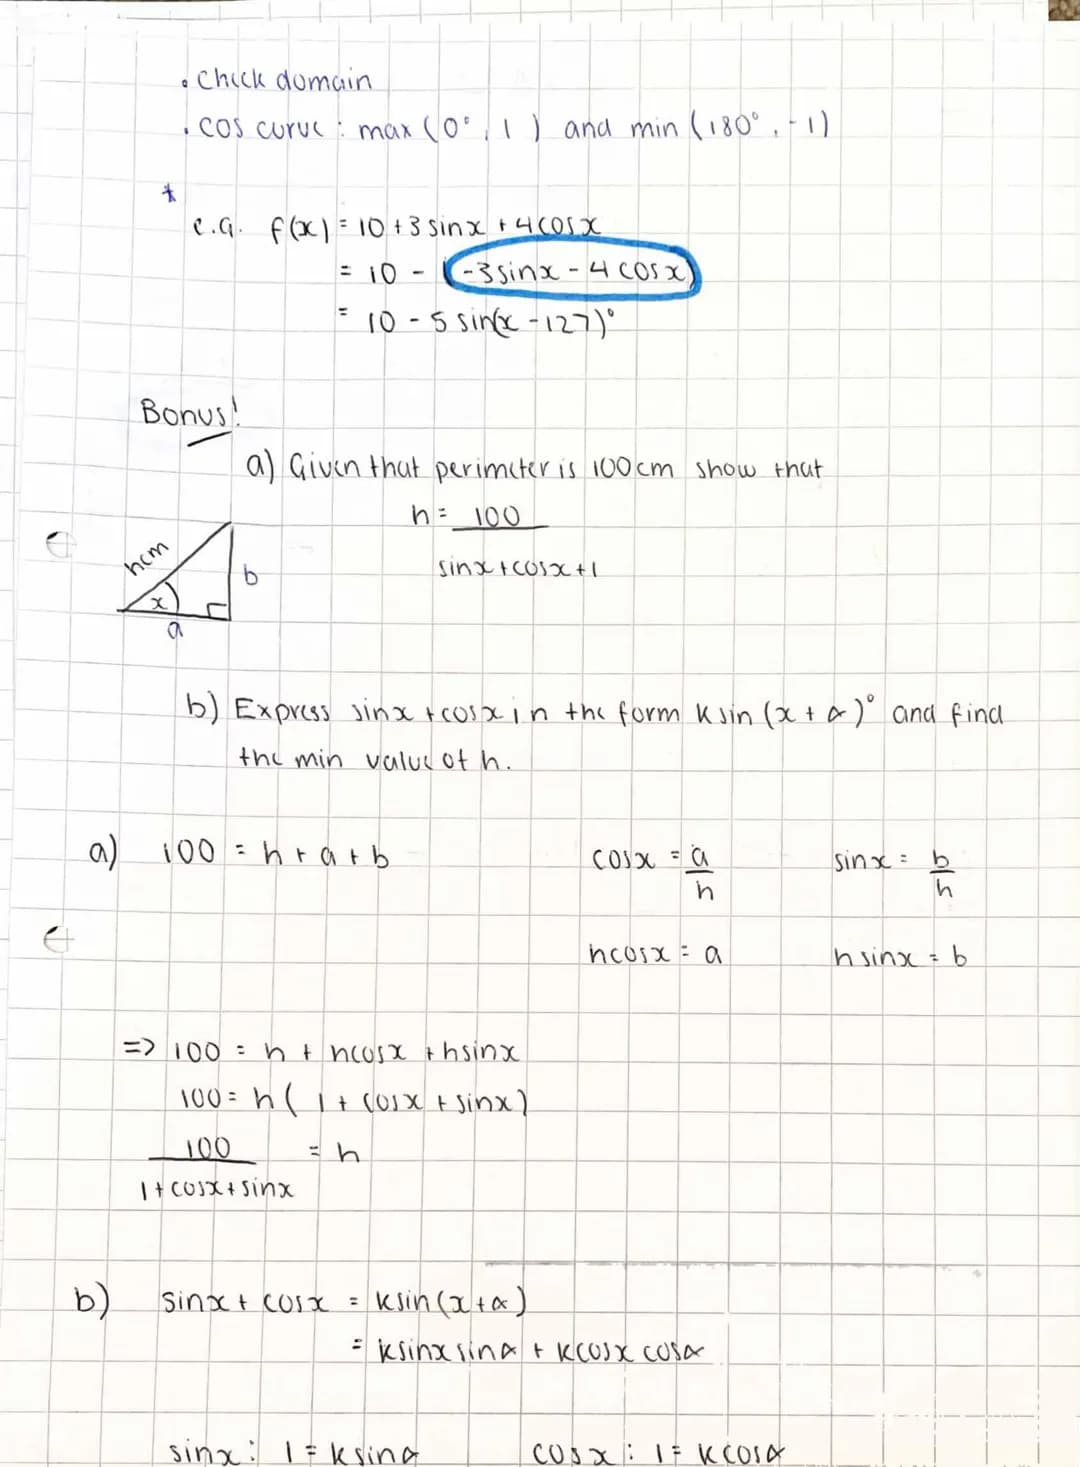 • Check domain
• cos curve : max (0°, 1) and min (180°, -1)
*
e.g. f(x) = 10 + 3 sinx + 4 cosx
= 10 - (-3 sinx - 4 cosx)
= 10 - 5 sin(x - 127)°
Bonus!
a) Given that perimeter is 100cm show that
h = 100
sinx + cosx + 1
hcm
b
x
a
b) Express sinx + cosx in the form k sin (x + α)° and find
the min value of h.
a) 100 = h + a + b cosx = a/h sinx = b/h
hcosx = a h sinx = b
=> 100 = h + hcosx + hsinx
100 = h ( 1 + cosx + sinx)
100 = h
1 + cosx + sinx
b) sinx + cosx = ksin(x + α)
= ksinx sinα + kcosx cosα
sinx : 1 = k sinα cosx : 1 = k cosα